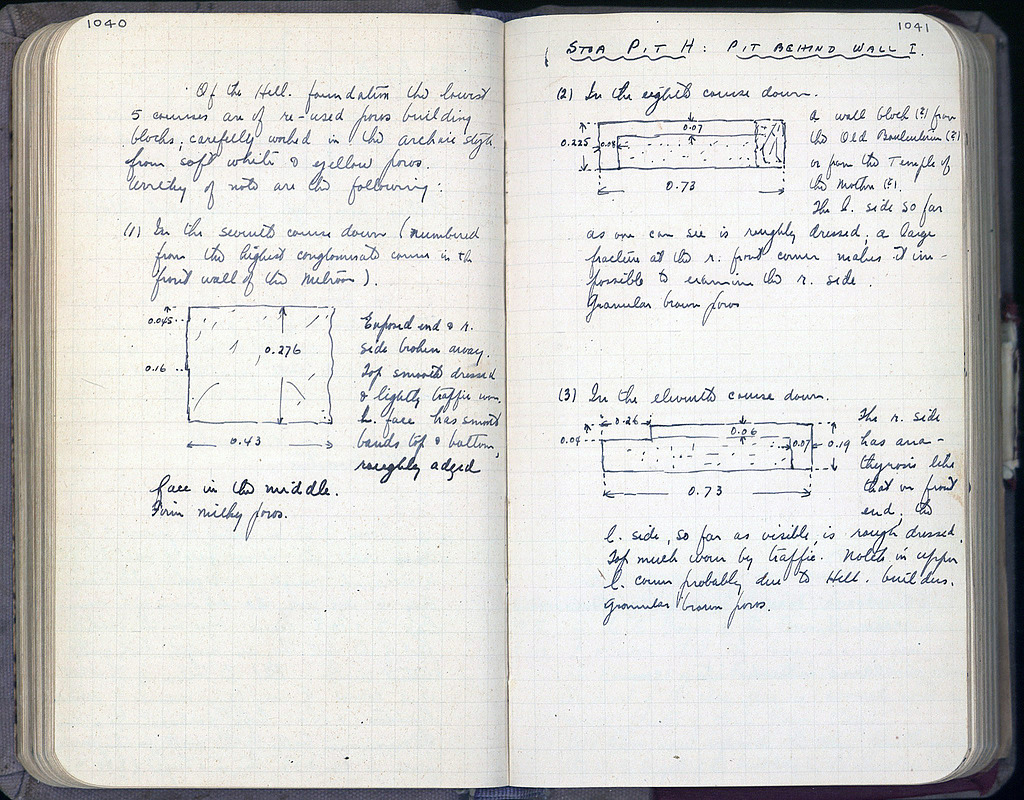 1040
Of the Hell. foundation the lowest
5 courses are of re-used poros building
blocks, carefully worked in the archaic style
from soft white & yellow poros.
Worthy of note are the following:
(1) In the seventh course down (numbered
from the highest conglomerate course in the
front wall of the Metroon).
0.045
0.16
0.276
0.43
Exposed end & r.
side broken away.
Top smooth dressed
& lightly traffic worn.
L. face has smooth
bands top & bottom,
roughly adzed
face in the middle.
Firm milky poros.
1041
STOA PIT H: PIT BEHIND WALL I.
(2) In the eighth course down.
0.07
0.225
0.08
0.73
A wall block (?) from
the Old Bouleuterion (?)
or from the Temple of
the Mother (?).
The l. side so far
as one can see is roughly dressed; a large
fracture at the r. front corner makes it im-
possible to examine the r. side.
Granular brown poros
(3) In the eleventh course down.
0.26
0.04
0.06
0.07
0.19
0.73
The r. side
has ana-
thyrosis like
that on front
end, the
l. side, so far as visible, is rough dressed.
Top much worn by traffic. Notch in upper
l. corner probably due to Hell. builders.
Granular brown poros.